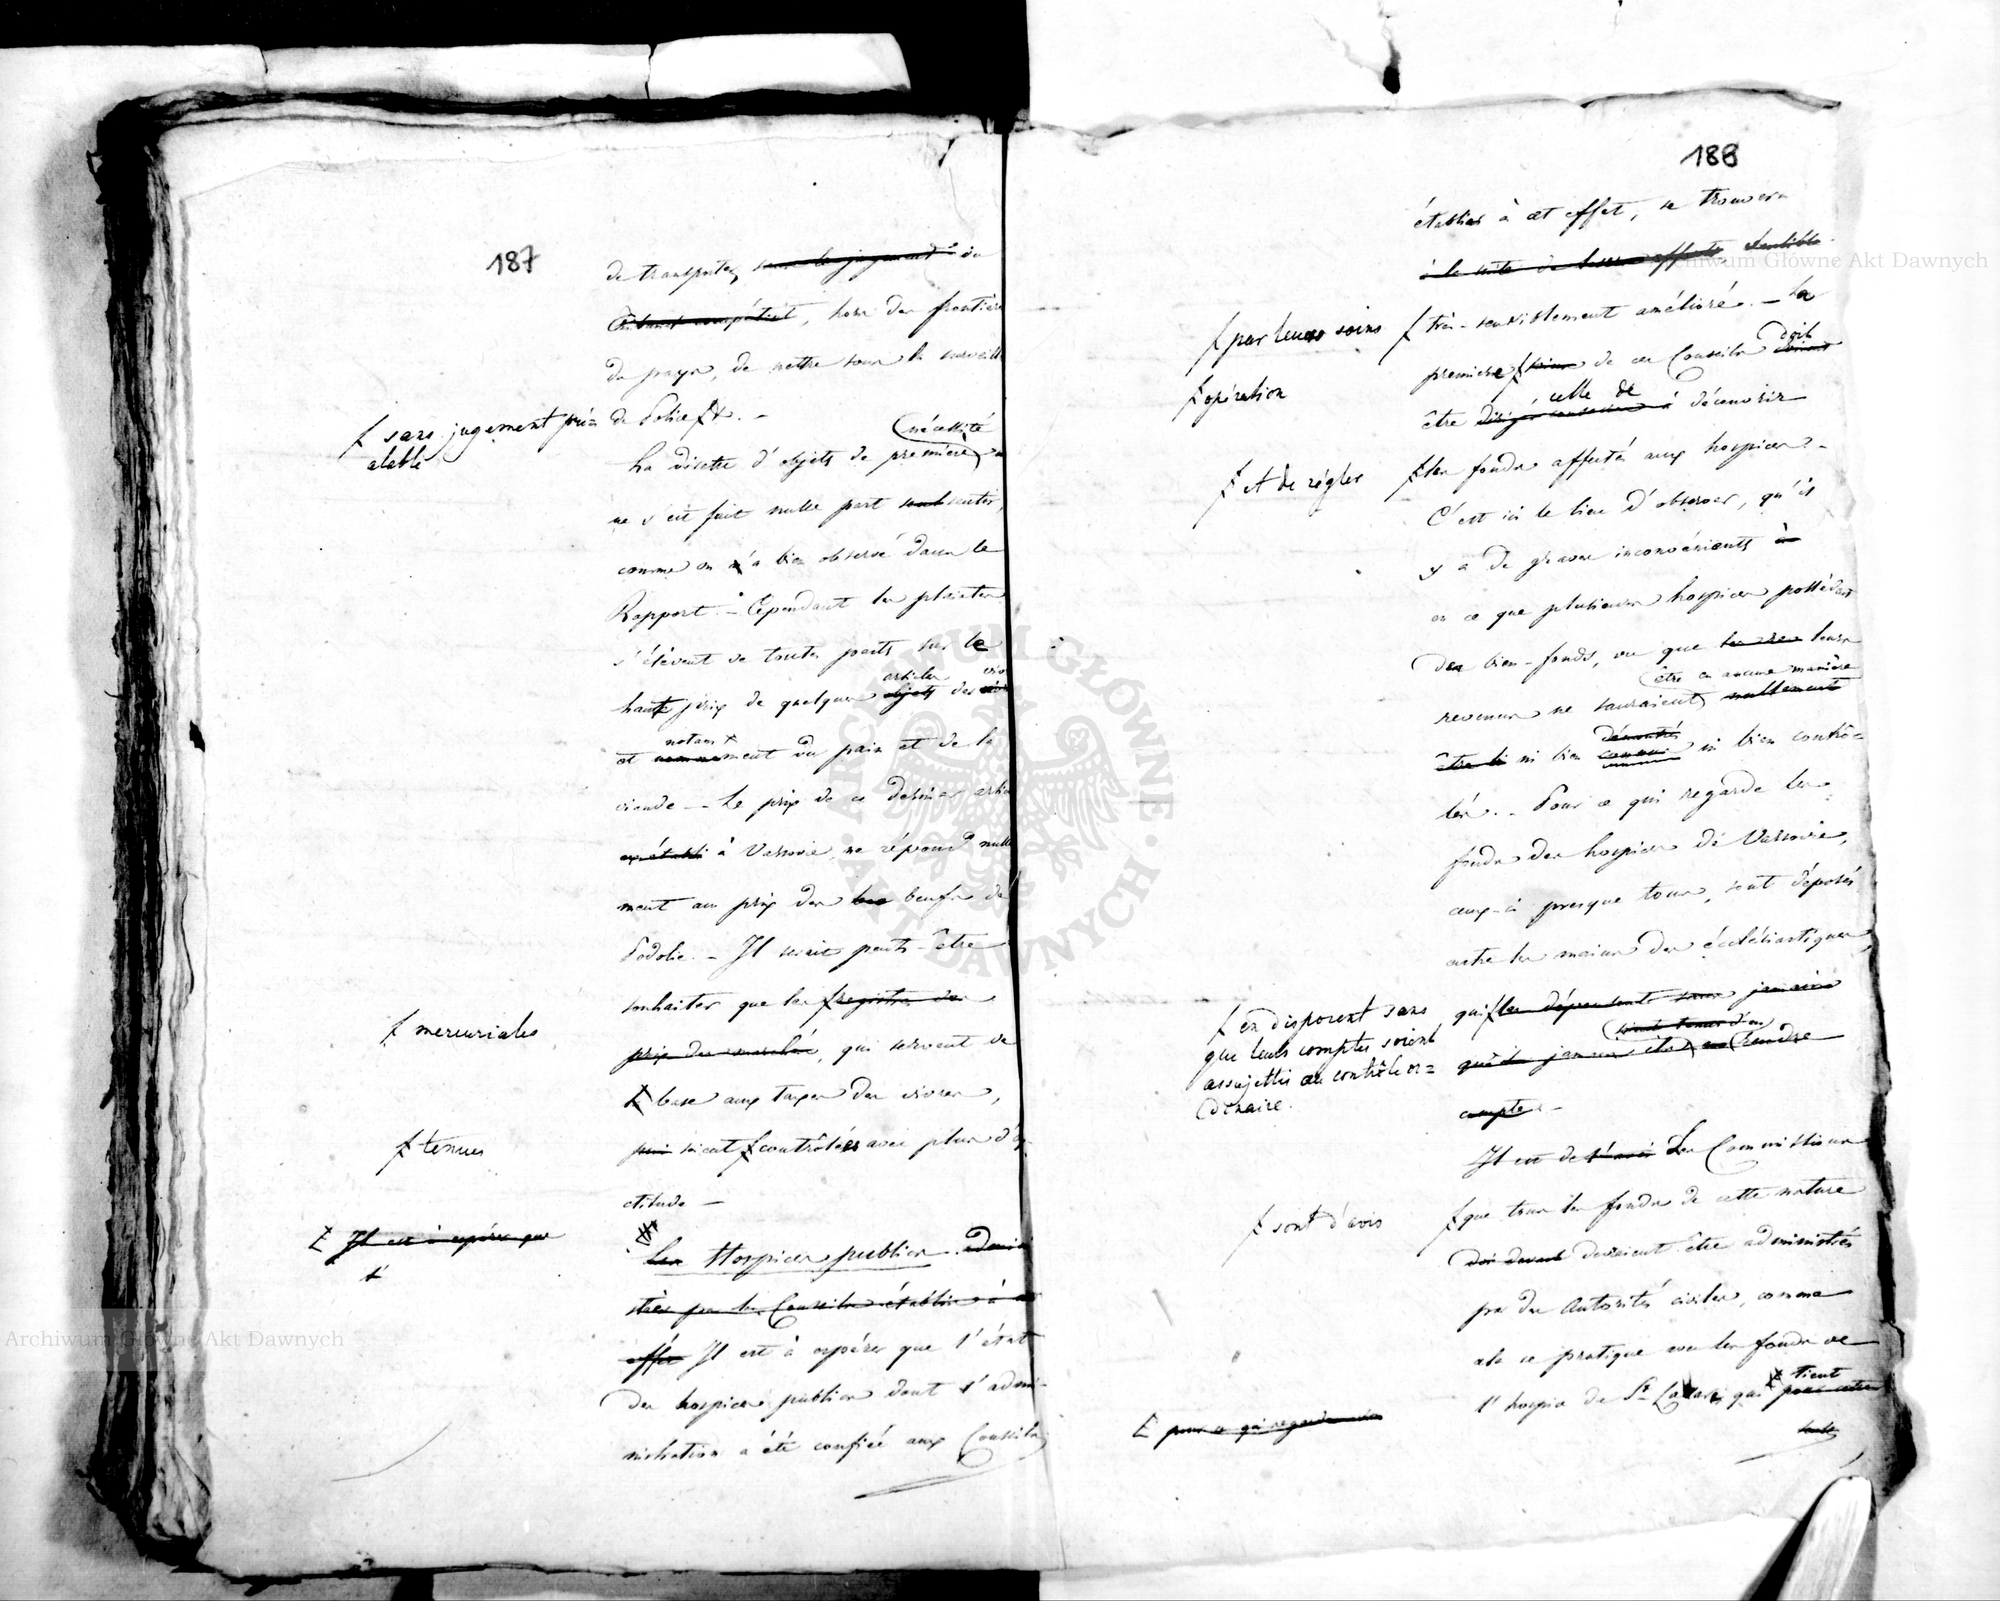 187
de transporter, sans le jugement du
Tribunal compétent, hors des frontières
du pays, de mettre sous la surveill
de Police
ƒ sans jugement pré=
alable
nécessité
La disette d'objets de première
ne s'est fait nulle part sentir,
comme on a bien observé dans le
Rapport. – Cependant les plaintes
s'élèvent de toutes parts sur le
articles
haut prix de quelques objets de
notam
et nommement du pain et de la
viande – Le prix de ce dernier
établi à Varsovie, ne répond nulle
ment au prix des bœufs de
Podolie. – Il serait peut-être
ƒ mercuriales
souhaiter que les ƒ registres des
prix des marchés, qui servent de
base aux taxes des vivres,
ƒ tenues
soient ƒ contrôlées avec plus d'ex
ctitude –
Il est à espérer que
l'
Les Hospices publics admini
strés par les Conseils établis à cet
effet Il est à espérer que l'état
des hospices publics dont l'admi-
nistration a été confiée aux Conseils
188
établis à cet effet, se trouvera
à la suite de leurs efforts sensible
ƒ par leurs soins
ƒ très-sensiblement amélioré. – La
doit
première ƒ de ces Conseils
ƒ opération
celle de
être à découvrir
ƒ et de régler
ƒ les fonds affectés aux hospices. –
C'est ici le lieu d'observer, qu'il
y a de graves inconvénients à
en ce que plusieurs hospices possèdent
des bien-fonds, vu que leurs
être en aucune manière
revenus ne sauraient nullement
démontrés
ni bien connus ni bien contrô=
lés. – Pour ce qui regarde les
fonds des hospices de Varsovie,
ceux-ci presque tous, sont déposés
entre les mains des écclésiastiques,
ƒ en disposent sans
que leurs comptes soient
assujettis au contrôle or=
dinaire.
qui ƒ les dépensent sans jamais
soient tenus d'en
rendre
compte –
Il est de l'avis Les Commissions
ƒ sont d'avis
ƒ que tous les fonds de cette nature
devraient être administrés
par des Autorités civiles, comme
cela se pratique avec les fonds de
tient
l'hospice de St. Lazare, qui
pour ce qui regarde
Archiwum Główne Akt Dawnych
Archiwum Główne Akt Dawnych
ARCHIWUM GŁÓWNE · AKT DAWNYCH ·